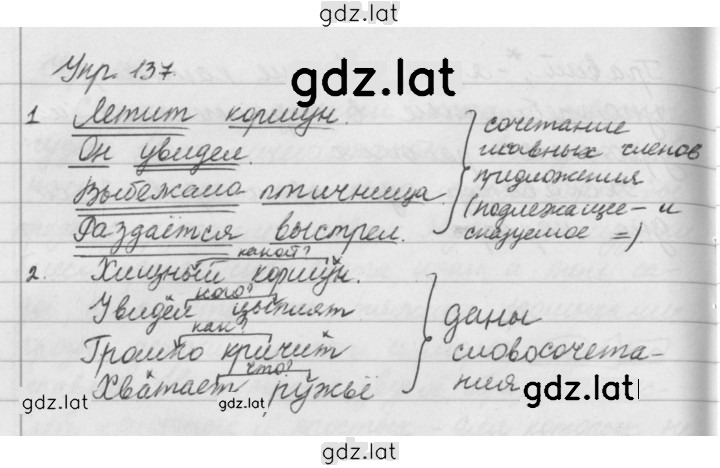 gdz.lat
Упр. 137.
gdz.lat
1. Летит коршун.
Он увидел.
Выбежала птичница.
Раздаётся выстрел.
сочетание
главных членов
предложения
(подлежащее — и
сказуемое =)
2. какой?
Хищный коршун.
кого?
Увидел цыплят
как?
Громко кричит
что?
Хватает ружьё
даны
словосочета-
ния
gdz.lat
gdz.lat
gdz.lat
gdz.lat
gdz.lat